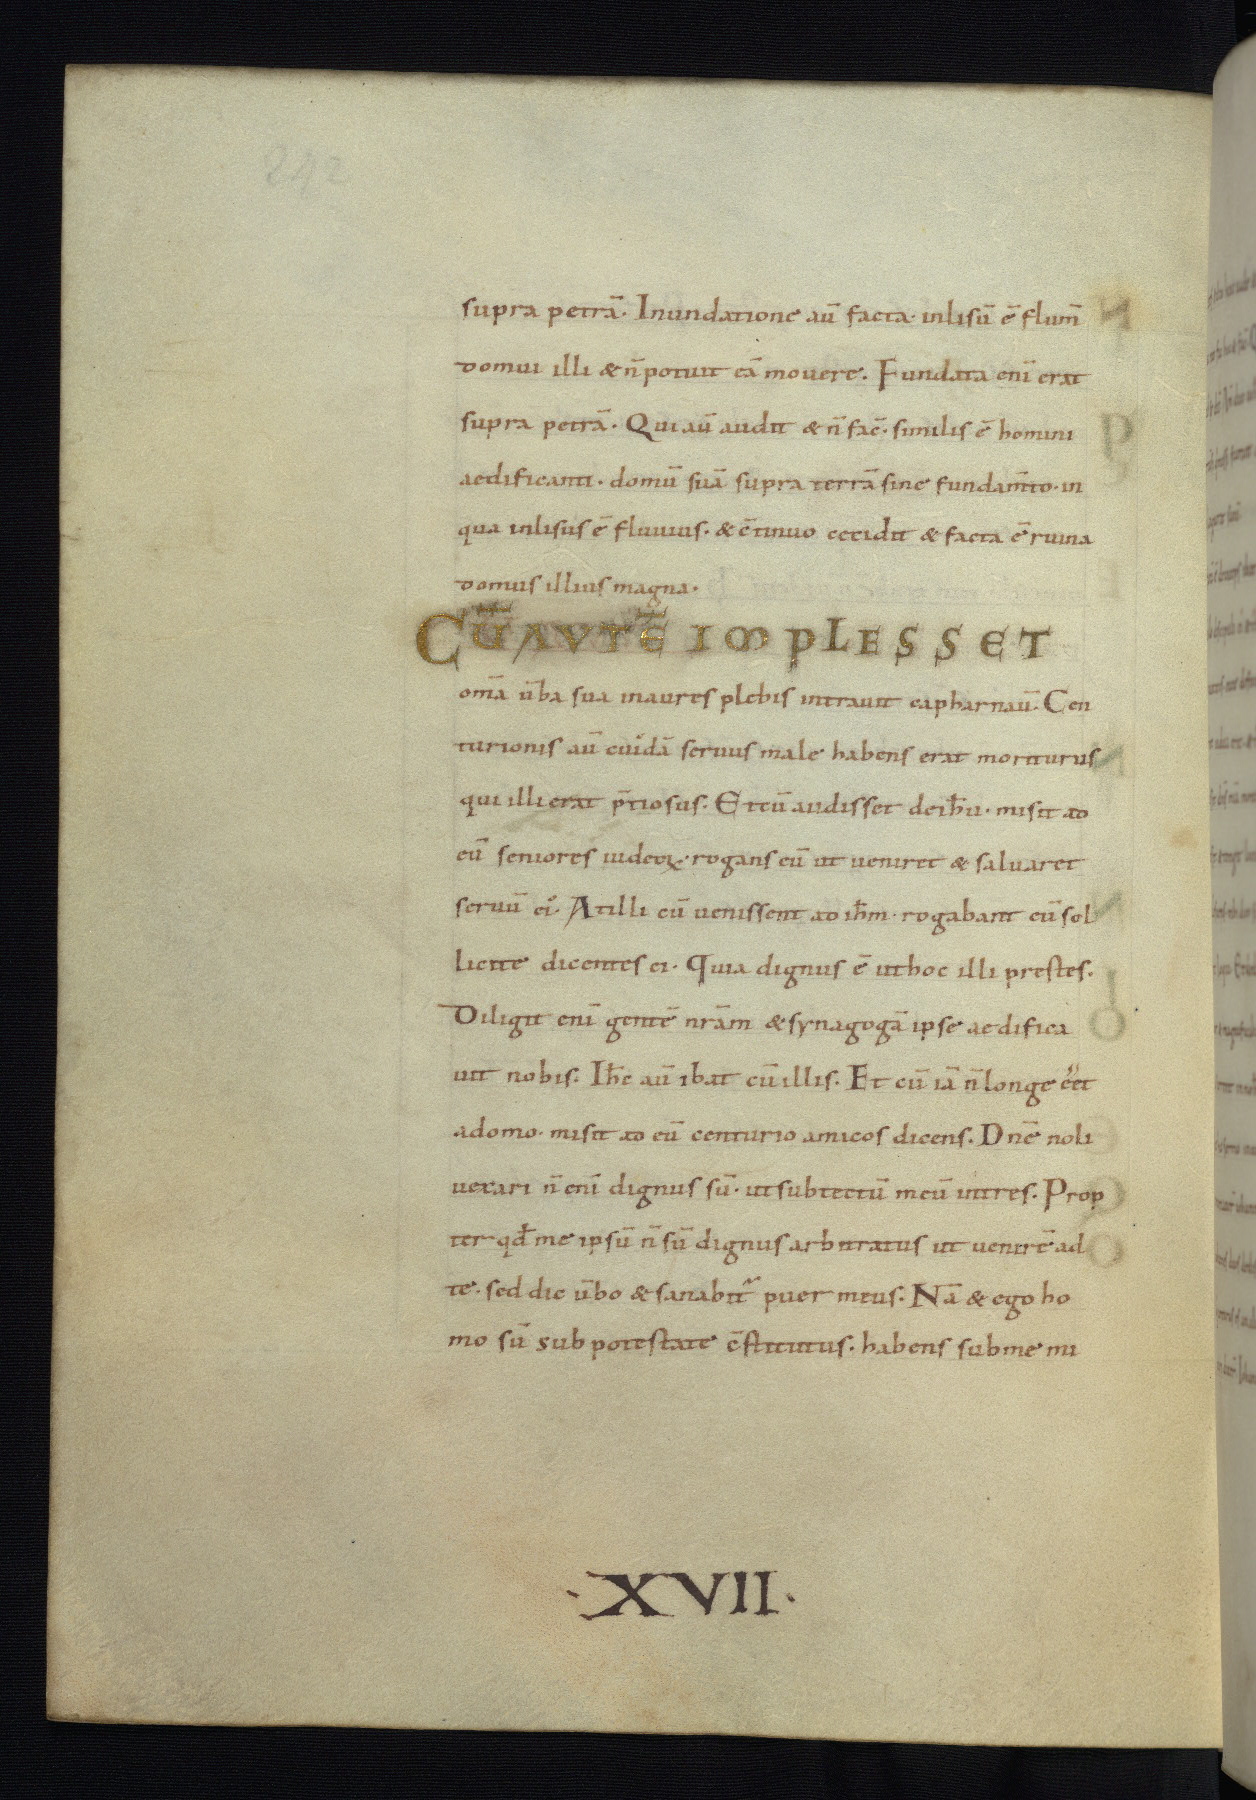 242
supra petrā. Inundatione aū facta. inlisū ē flum̄
domui illi & n̄ potuit eā movere. Fundata eni̅ erat
supra petrā. Qui aū audit & n̄ fac̄. similis ē homini
aedificanti. domū suā supra terrā sine fundam̄to. in
qua inlisus ē fluvius. & c̄tinuo cecidit & facta ē ruina
domus illius magna.
CŪ AUTĒ IMPLESSET
om̄a ūba sua in aures plebis intravit capharnaū. Cen
turionis aū cuidā servus male habens erat moriturus
qui illi erat p̄tiosus. Et cū audisset de ih̄u. misit ad
eū seniores iudeoꝝ. rogans eū ut veniret & salvaret
servū ei᾽. At illi cū venissent ad ih̄m. rogabant eū sol
licite dicentes ei. Quia dignus ē ut hoc illi prestes.
Diligit eni̅ gentē nr̄am & synagogā ipse aedifica
vit nobis. Ih̄c aū ibat cū illis. Et cū iā n̄ longe e͞et
a domo. misit ad eū centurio amicos dicens. Dn̄e noli
vexari n̄ eni̅ dignus sū. ut sub tectū meū intres. Prop
ter qd̄ me ipsū n̄ sū dignus arbitratus ut venirē ad
te. sed dic ūbo & sanabit᷑ puer meus. Nā & ego ho
mo sū sub potestate c̄stitutus. habens sub me mi
·XVII·